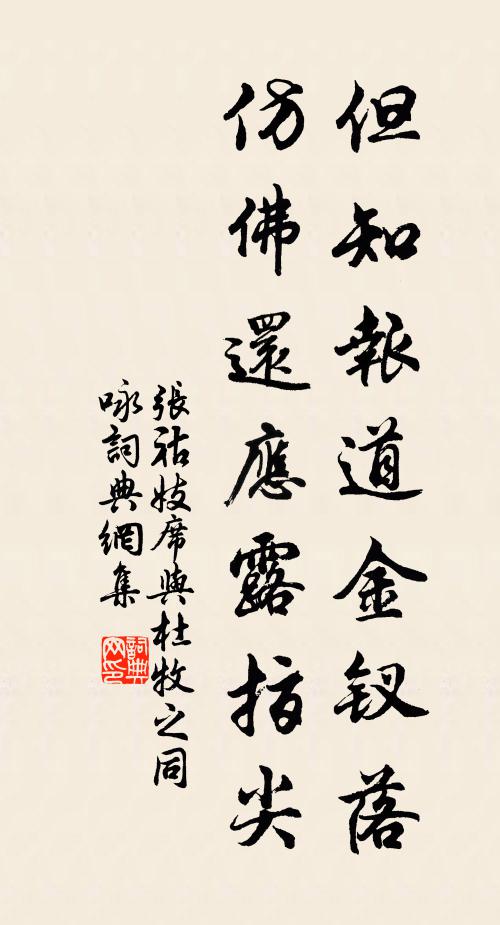 但知報道金釵落
仿佛還應露指尖
張祜妓席與杜牧之同
咏詞典網集
詞典
网印